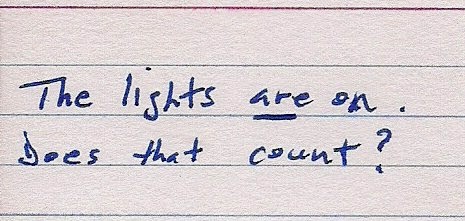 The lights are on.
Does that count?